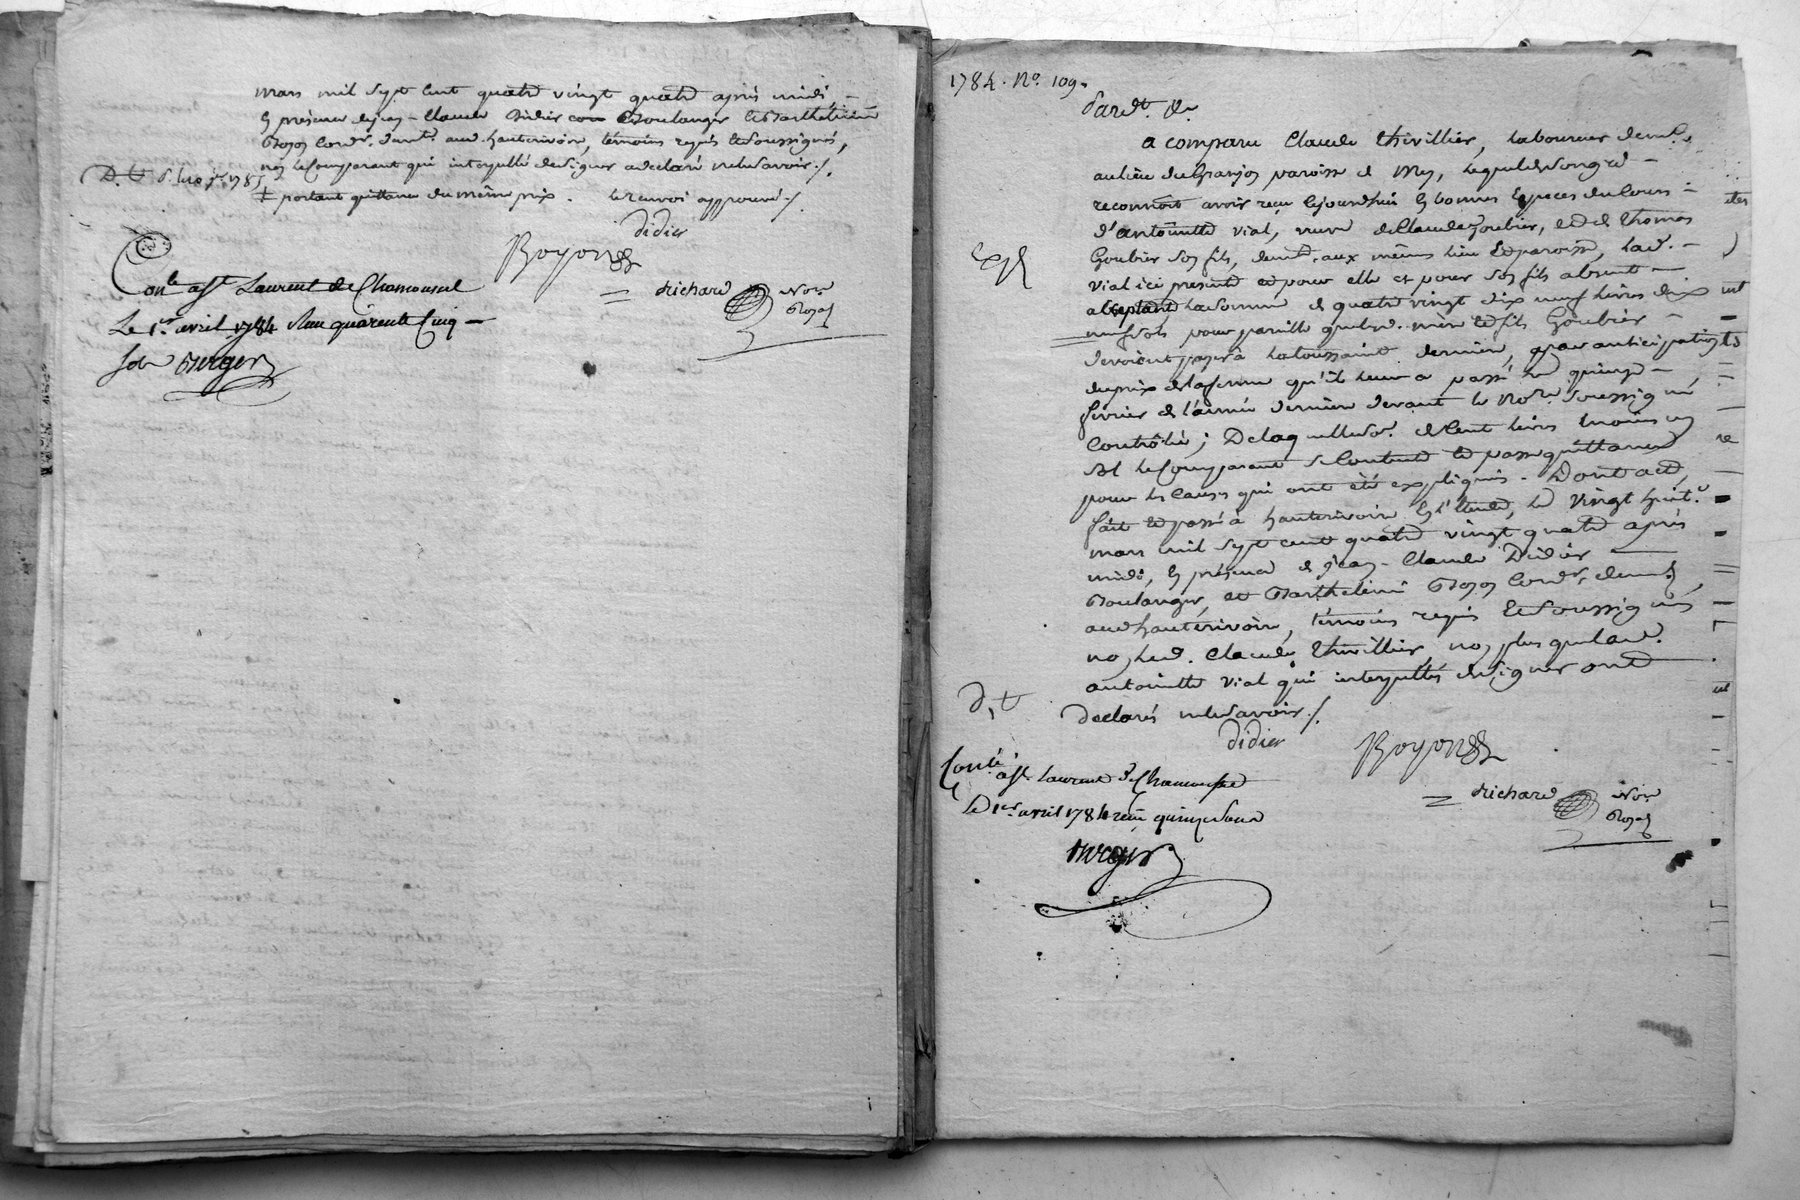 mars mil sept cent quatre vingt quatre après midi, —
en présence de jean-Claude Didier Boulanger et Barthelémi
Boyon Cord.r demt. aud. hauterivoire, témoins requis et soussignés,
non le Comparant qui interpellé de signer a declaré ne le savoir ./.
+ portant quittance du même prix. le renvoi approuvé ./.
didier
Boyon
Richard Nore.
Royal
Conlé. a St Laurent de Chamousset
Le 1er. avril 1784 Reçu quarente Cinq —
sols Berger
1784. No. 109.
Pardt. &a
a comparu Claude thivillier, laboureur demt.
au lieu des granjes paroisse de Mey, lequel de son gré —
reconnoit avoir reçu cejourdhui en bonnes Especes du Cours —
d'antoinette vial, veuve de Claude Goubier, et de thomas
Goubier son fils, demt. aux mêmes lieu et paroisse, lad. —
vial ici presente et pour elle et pour son fils absent —
acceptante la somme de quatre vingt dix neuf livres dix
neuf sols pour pareille que lesd. mère et fils Goubier —
devoient payer à la toussaint derniere, par anticipation
du prix de la ferme qu'il leur a passé le quinze —
février de l'année derniere devant le Nore. soussigné
Controlé; De laquelle so. de Cent livres moins un
sol le Comparant se Contente et passe quittance
pour les Causes qui ont été expliquées. Dont acte,
fait et passé à hauterivoire En l'étude, le vingt huit
mars mil sept cent quatre vingt quatre après
midi, en présence de jean-Claude Didier
Boulanger, et Barthelemi Boyon Cordr. demt.
aud. hauterivoire, témoins requis et soussignés
non led. Claude thivillier, non plus que lad.
antoinette vial qui interpellés de signer ont
declarés ne le savoir ./.
didier
Boyon
Richard Nore.
Royal
Conlé.
a St Laurent de Chamousset
Le 1er. avril 1784 reçu quinze sous
Berger